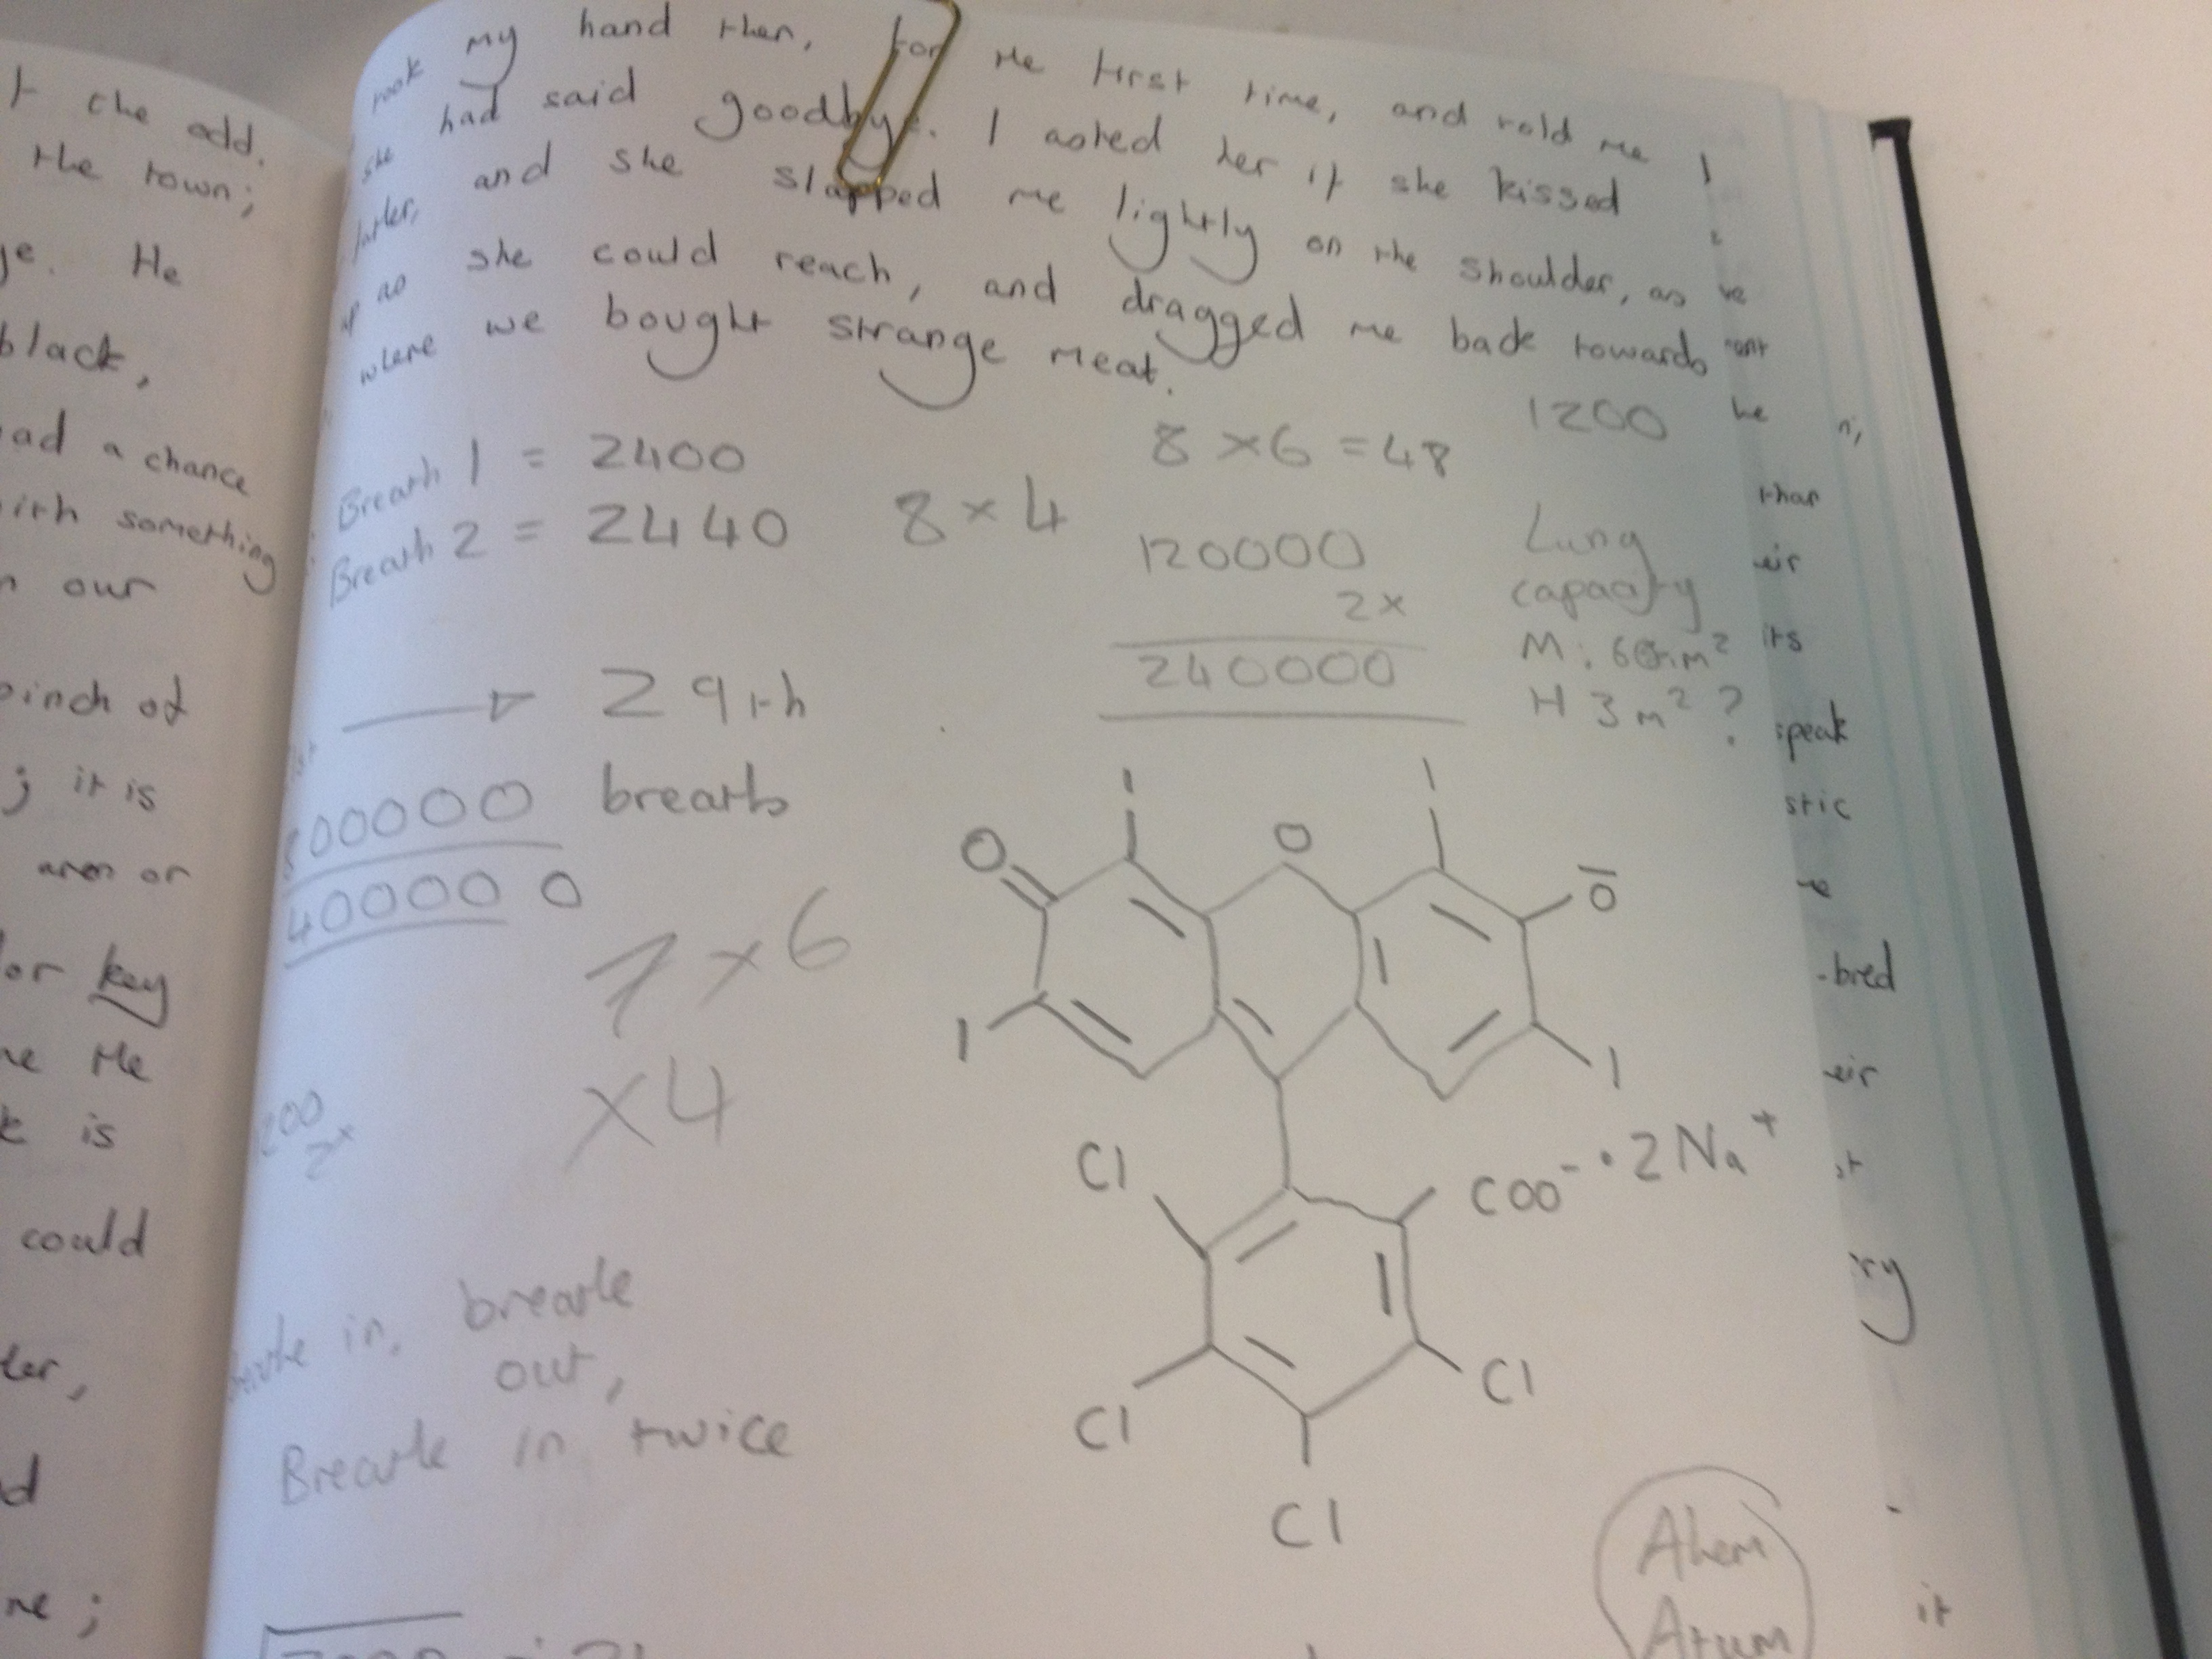 t the odd.
the town;
He
black,
ad a chance
ith something
our
pinch of
; it is
or
or key
ne the
is
could
ter,
d
ne ;
took my hand then, for the first time, and told me I
she had said goodbye. I asked her if she kissed
father, and she slapped me lightly on the shoulder, as
up as she could reach, and dragged me back towards
where we bought strange meat.
Breath 1 = 2400
Breath 2 = 2440
8 × 4
8 × 6 = 48
1200
120000
2 ×
240000
Lung
capacity
M:
H 3 m² ?
29th
breath
00000
400000
7 × 6
× 4
200
2 ×
in, breathe
out,
Breathe in twice
I
I
O
O
O⁻
I
I
Cl
COO⁻ · 2Na⁺
Cl
Cl
Cl
Ahem
Atum
he
than
eir
its
speak
stic
-bred
eir
ry
it